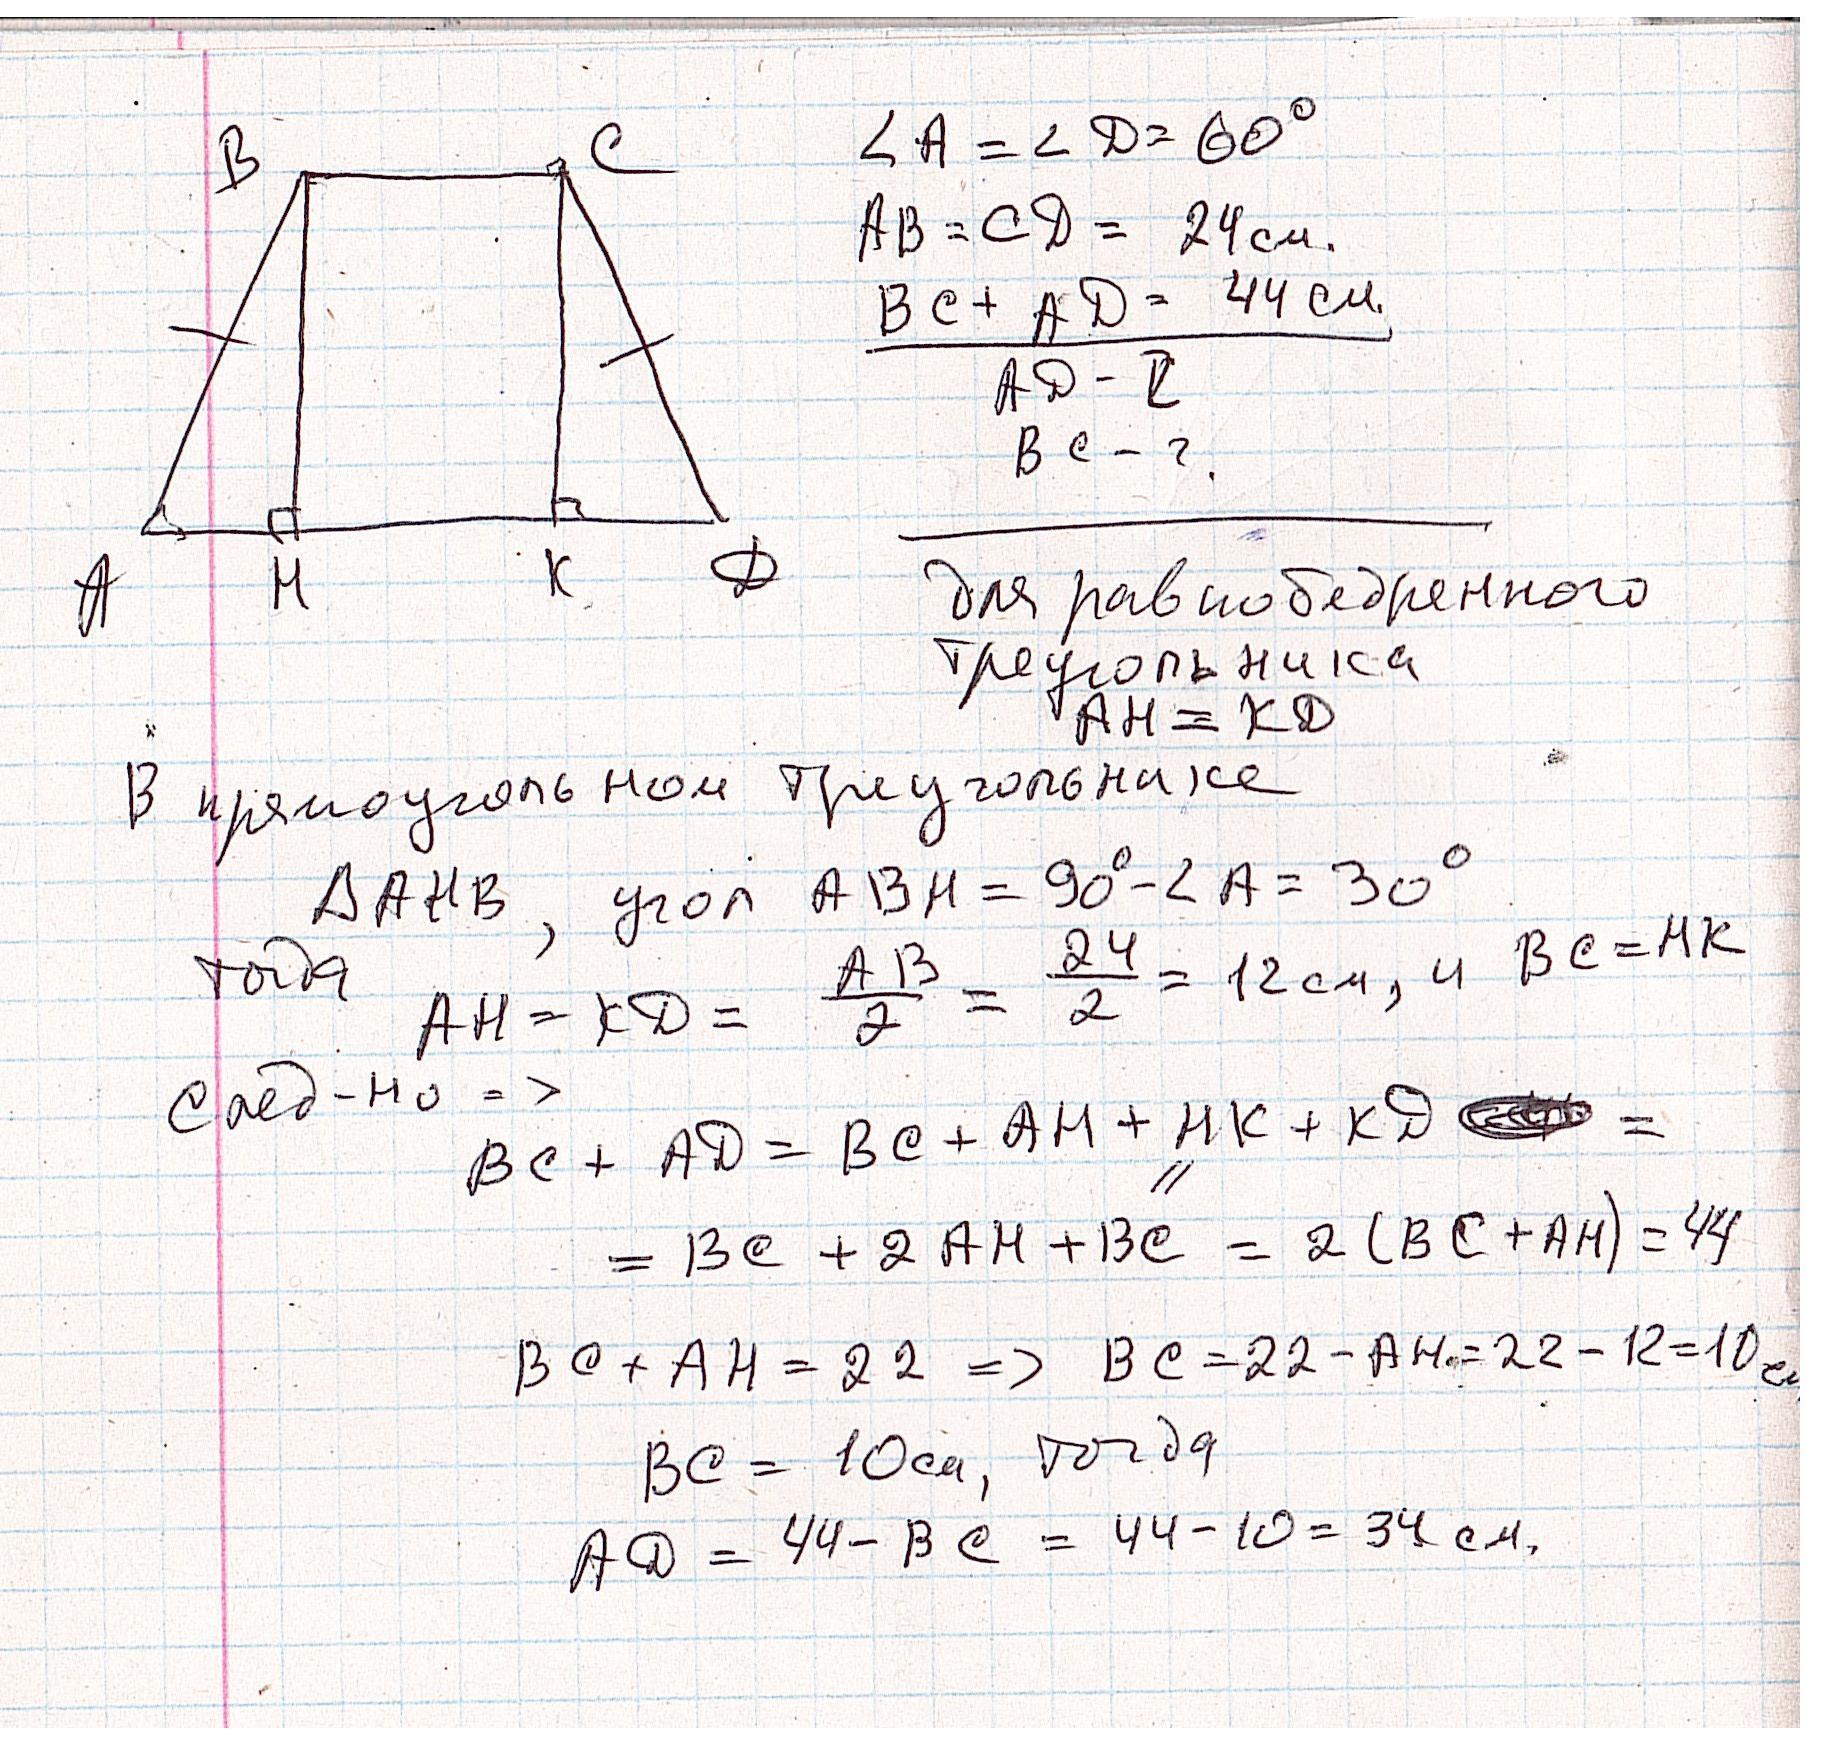 B
C
A
H
K
D
∠A = ∠D = 60°
AB = CD = 24 см.
BC + AD = 44 см.
AD - ?
BC - ?.
для равнобедренного
треугольника
AH = KD
В прямоугольном треугольнике
ΔAHB, угол ABH = 90° - ∠A = 30°
тогда AH = KD = AB/2 = 24/2 = 12 см, и BC = HK
след-но =>
BC + AD = BC + AH + HK + KD =
//
= BC + 2AH + BC = 2(BC + AH) = 44
BC + AH = 22 => BC = 22 - AH = 22 - 12 = 10 см
BC = 10 см, тогда
AD = 44 - BC = 44 - 10 = 34 см.